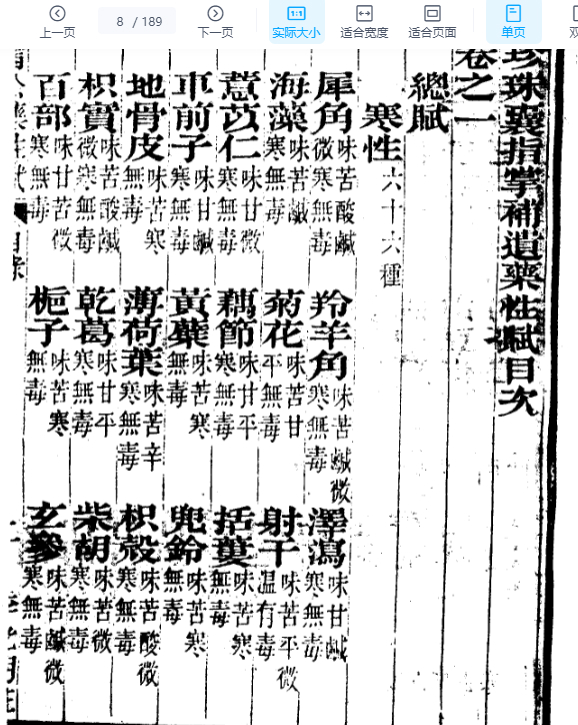 上一页
8 / 189
下一页
1:1
实际大小
适合宽度
适合页面
单页
珍珠囊指掌補遺藥性賦目次
卷之一
總賦
寒性 六十六種
犀角 味苦酸鹹微寒無毒 羚羊角 味苦鹹微寒無毒 澤瀉 味甘鹹寒無毒
海藻 味苦鹹寒無毒 菊花 味苦甘平無毒 射干 味苦平微温有毒
薏苡仁 味甘微寒無毒 藕節 味甘平寒無毒 括蔞 味苦寒無毒
車前子 味甘鹹寒無毒 黃蘗 味苦寒無毒 兜鈴 味苦寒無毒
地骨皮 味苦寒無毒 薄荷葉 味苦辛寒無毒 枳殼 味苦酸微寒無毒
枳實 味苦酸鹹微寒無毒 乾葛 味甘平寒無毒 柴胡 味苦微寒無毒
百部 味甘苦微寒無毒 梔子 味苦寒無毒 玄參 味苦鹹微寒無毒